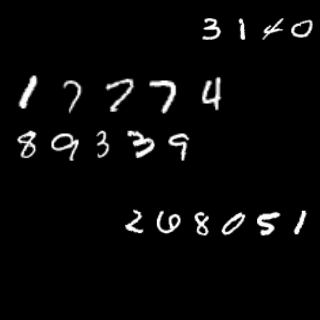 3140
17774
89339
268051